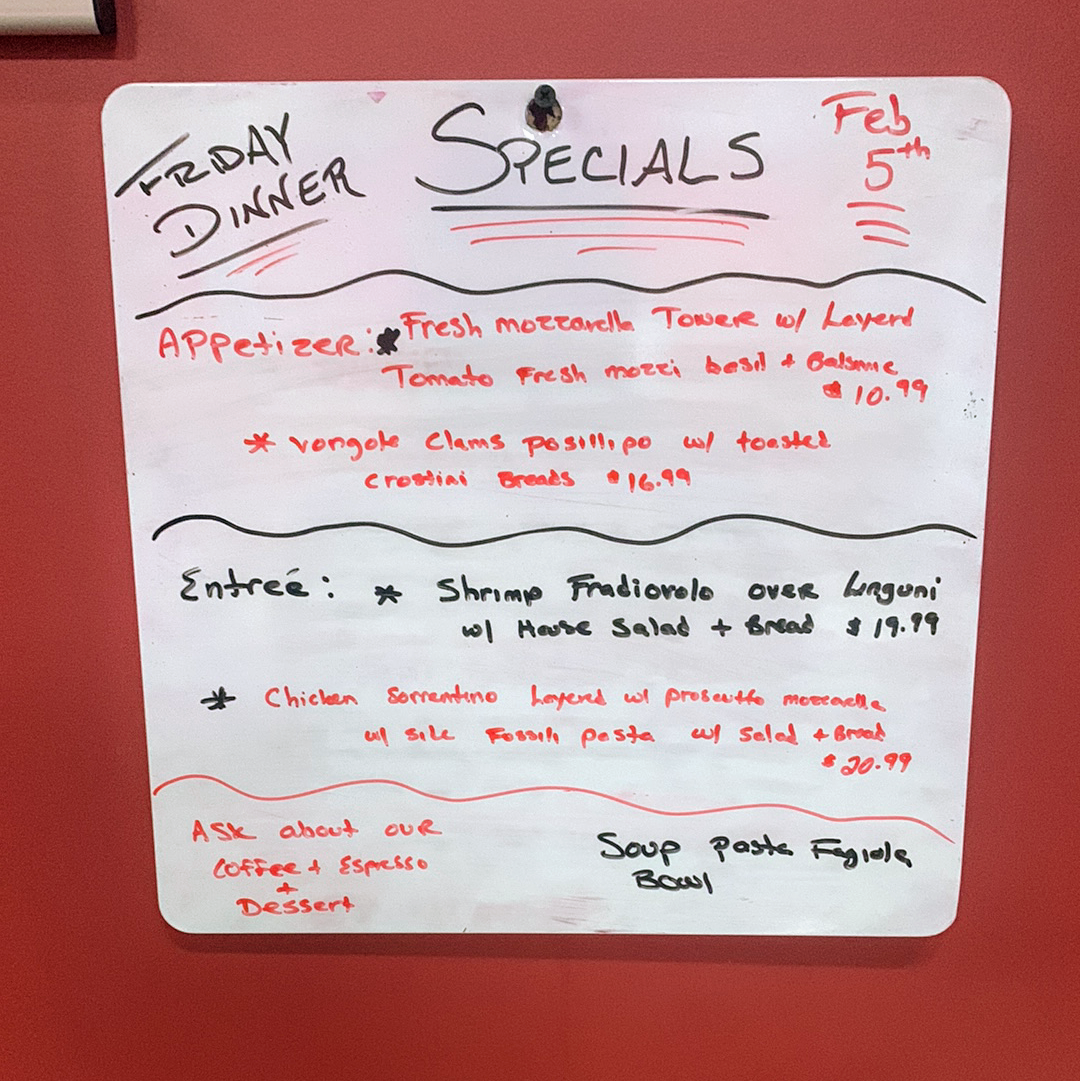 FRIDAY
DINNER
SPECIALS
Feb
5th
APPetizer: * Fresh mozzarella Tower w/ Layerd
Tomato Fresh mozzi basil + Balsmic
$10.99
* vongole Clams posillipo w/ toasted
crostini Breads $16.99
Entreé: * Shrimp Fradiovolo over Linguni
w/ House Salad + Bread $19.99
* Chicken Sorrentino Layered w/ proscutto mozzarella
w/ side Fossili pasta w/ Salad + Bread
$20.99
ASk about our
Coffee + Espresso
+
Dessert
Soup Pasta Fagiola
Bowl